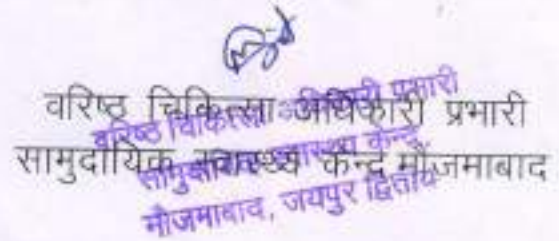 वरिष्ठ चिकित्सा अधिकारी प्रभारी
सामुदायिक स्वास्थ्य केन्द्र मौजमाबाद
वरिष्ठ चिकित्सा अधिकारी प्रभारी
सामुदायिक स्वास्थ्य केन्द्र
मौजमाबाद, जयपुर द्वितीय